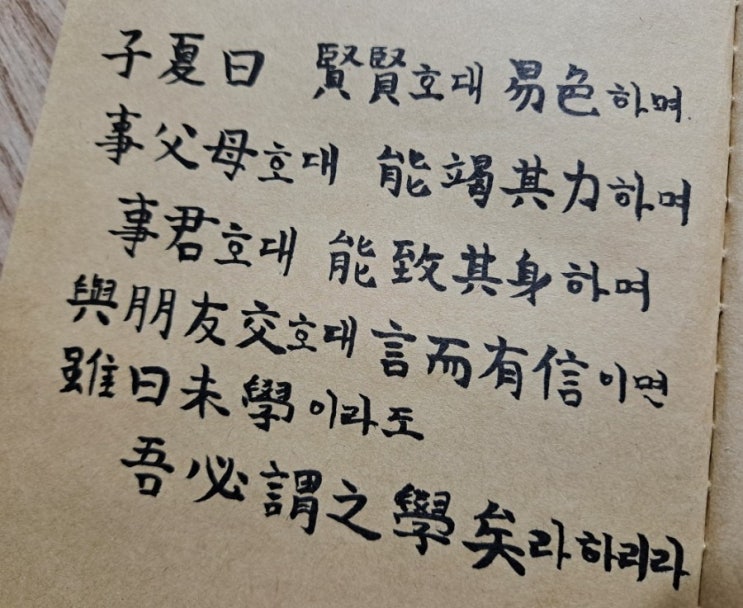 子夏曰 賢賢호대 易色하며.
事父母호대 能竭其力하며
事君호대 能致其身하며
與朋友交호대 言而有信이면
雖曰未學이라도
吾必謂之學矣라하리라